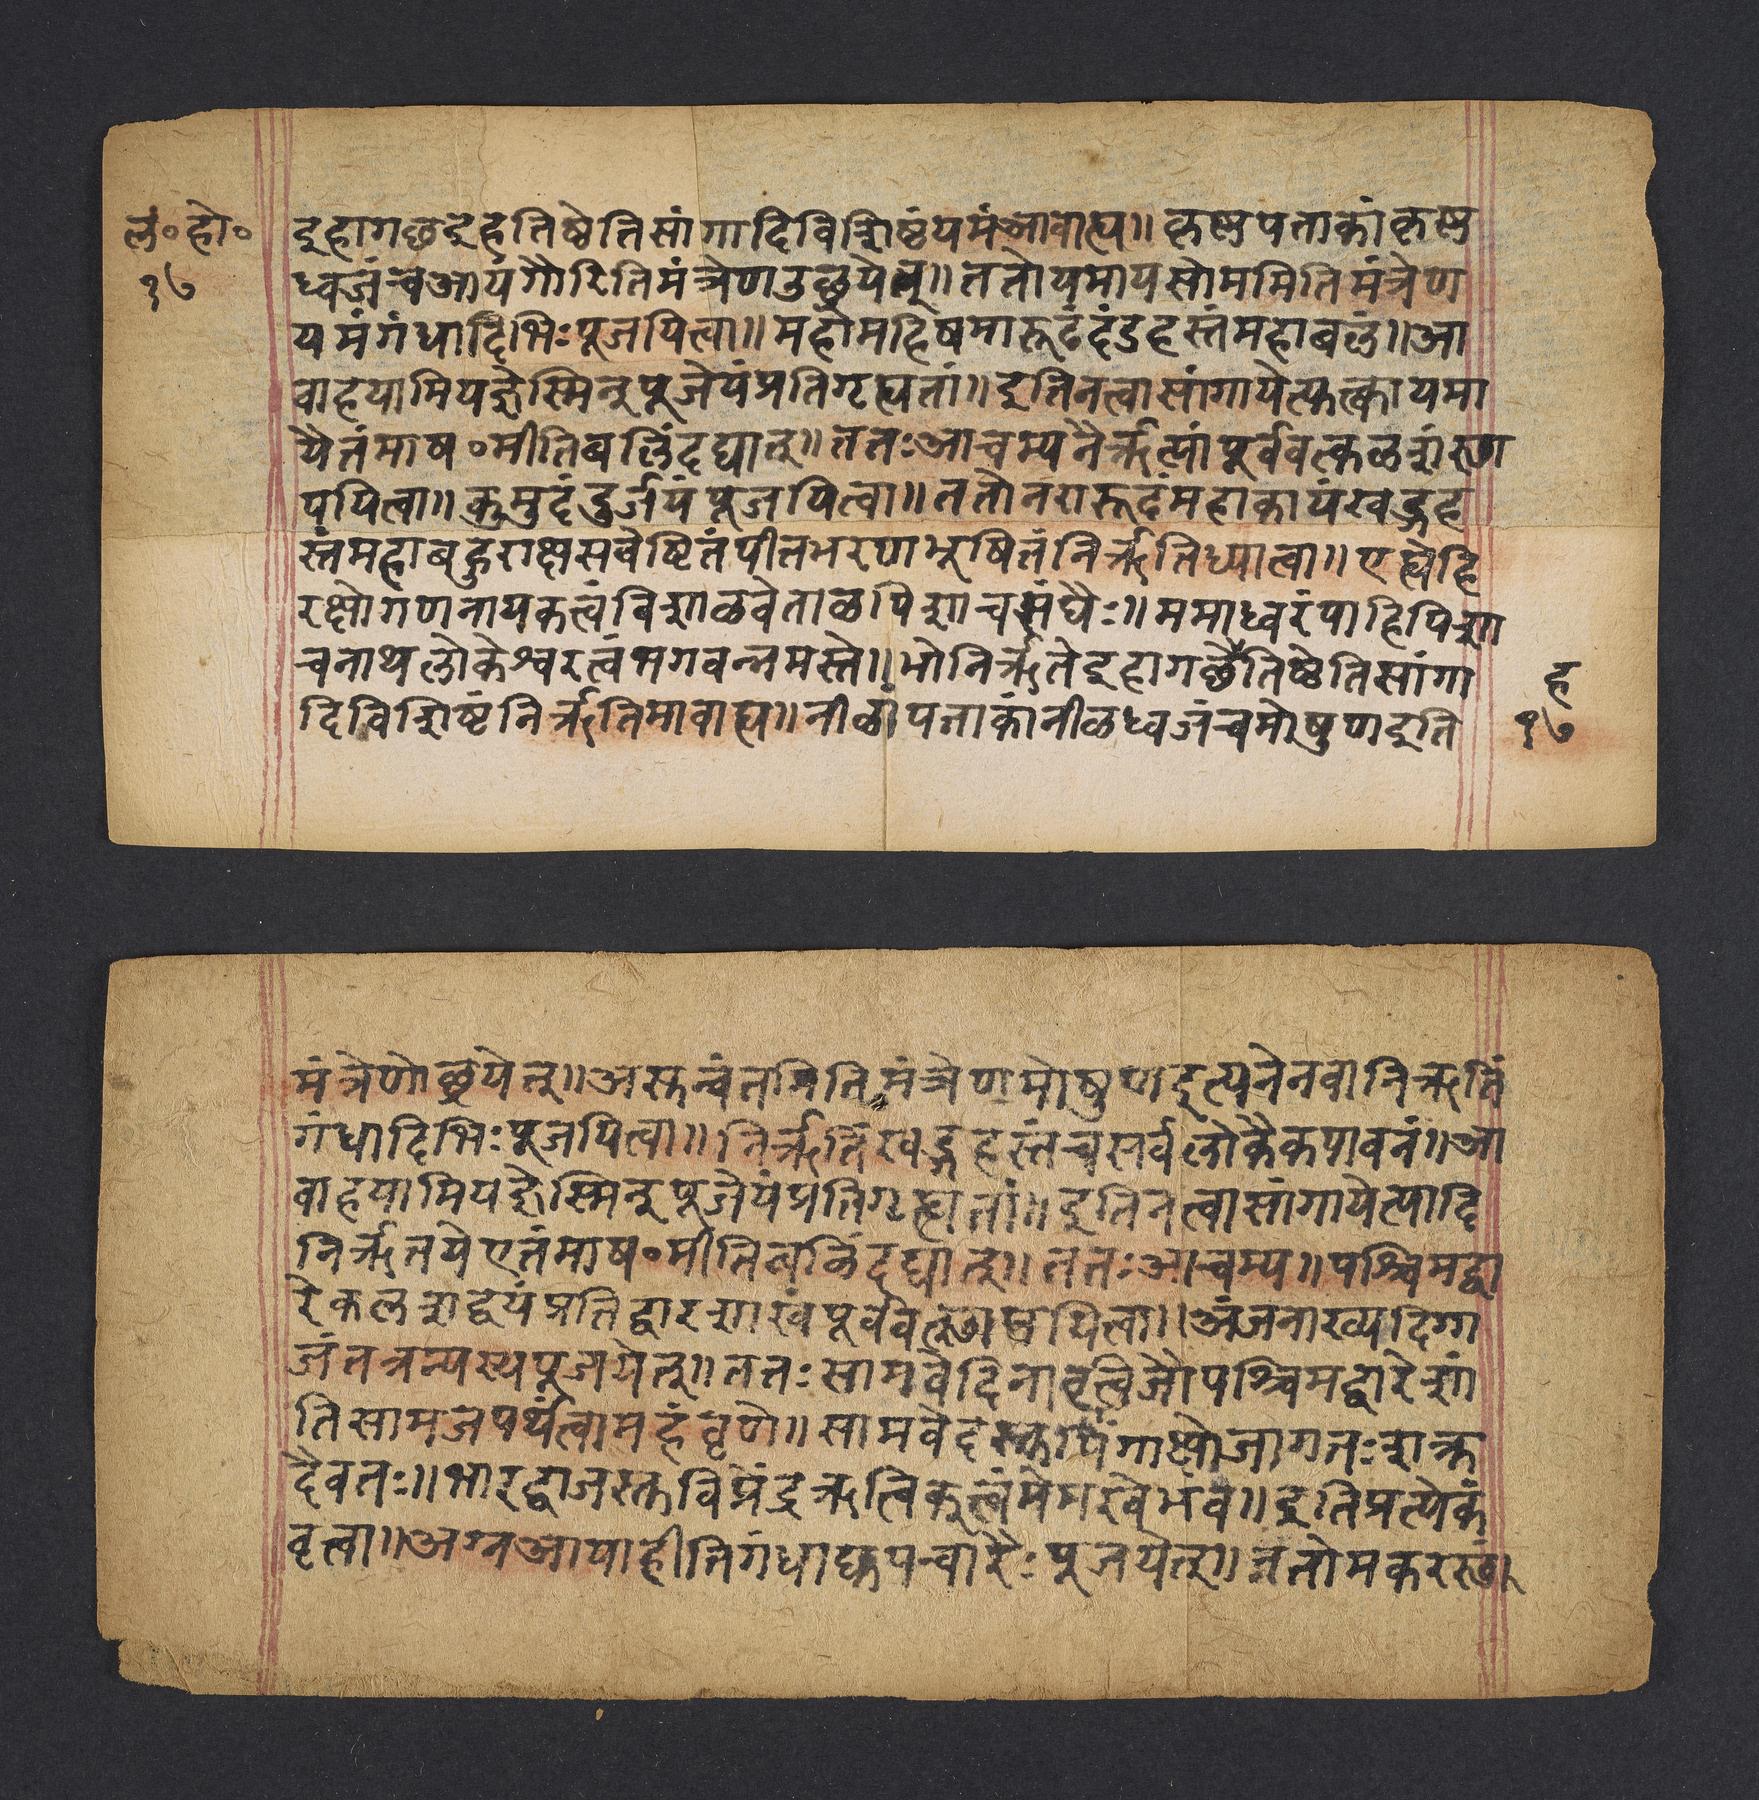 लं॰हो॰
१७
इहागछइहतिष्ठेतिसांगादिविशिष्टंयमंआवाह्य॥कृष्णपताकांकृष्ण
ध्वजंचआयंगौरितिमंत्रेणउछ्रयेत्॥ततोयमायसोममितिमंत्रेण
यमंगंधादिभिःपूजयित्वा॥महामहिषमारूढंदंडहस्तंमहाबलं॥आ
वाहयामियज्ञेस्मिन्पूजेयंप्रतिगृह्यतां॥इतिनत्वासांगायेत्युक्त्कायमा
यैतंमाष॰मीतिबलिंदद्यात्॥ततःआचम्यनैर्ऋत्यांपूर्ववत्कळशंस्था
पयित्वा॥कुमुदंदुर्जयंपूजयित्वा॥ततोनरारूढंमहाकायंखड्गह
स्तंमहाबहुराक्षसवेष्टितंपीतभरणभूषितंनिर्ऋतिध्यात्वा॥एह्येहि
रक्षोगणनायकत्त्वंविशाळवेताळपिशाचसंघैः॥ममाध्वरंपाहिपिशा
चनाथलोकेश्वरत्वंभगवन्नमस्ते॥भोनिर्ऋतेइहागछेतिष्ठेतिसांगा
दिविशिष्टंनिर्ऋतिमावाह्य॥नीळांपताकांनीळध्वजंचमोषुणइति
ह
१७
मंत्रेणोछ्रयेत्॥असुन्वंतमितिमंत्रेणमोषुणइत्यनेनवानिर्ऋतिं
गंधादिभिःपूजयित्वा॥निर्ऋतिंखड्गहस्तंचसर्वलोकैकपावनं॥आ
वाहयामियज्ञेस्मिन्पूजेयंप्रतिगृह्यतां॥इतिनत्वासांगायेत्यादि
निर्ऋतयेएतंमाष॰मीतिबलिंदद्यात्॥ततःआचम्य॥पश्चिमद्वा
रेकलशद्वयंप्रतिद्वारशाखंपूर्ववत्स्थापयित्वा॥अंजनाख्यदिग्ग
जंतत्रन्यस्यपूजयेत्॥ततःसामवेदिनाऋत्विजौपश्चिमद्वारेशां
तिसामजपर्थंत्वामहंवृणे॥सामवेदस्तुपिंगाक्षोजागतःशक्र
दैवतः॥भारद्वाजस्तुविप्रेंद्रऋत्विक्त्वंमेमखेभव॥इतिप्रत्येकं
वृत्वा॥अग्नआयाहीतिगंधाद्युपचारैःपूजयेत्॥ततोमकरस्थां